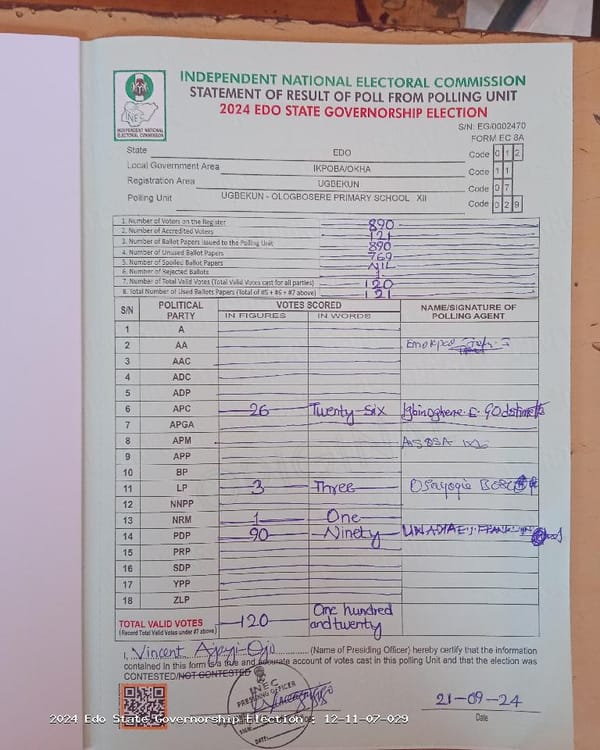 INDEPENDENT NATIONAL ELECTORAL COMMISSION
STATEMENT OF RESULT OF POLL FROM POLLING UNIT
2024 EDO STATE GOVERNORSHIP ELECTION
INEC
INDEPENDENT NATIONAL ELECTORAL COMMISSION
S/N: EG/0002470
FORM EC 8A
State EDO Code 0 1 2
Local Government Area IKPOBA/OKHA Code 1 1
Registration Area UGBEKUN Code 0 7
Polling Unit UGBEKUN - OLOGBOSERE PRIMARY SCHOOL XII Code 0 2 9
1. Number of Voters on the Register 890
2. Number of Accredited Voters 121
3. Number of Ballot Papers Issued to the Polling Unit 890
4. Number of Unused Ballot Papers 769
5. Number of Spoiled Ballot Papers NIL
6. Number of Rejected Ballots 1
7. Number of Total Valid Votes (Total Valid Votes cast for all parties) 120
8. Total Number of Used Ballots Papers (Total of #5 + #6 + #7 above) 121
S/N POLITICAL PARTY VOTES SCORED NAME/SIGNATURE OF POLLING AGENT
IN FIGURES IN WORDS
1 A
2 AA
3 AAC
4 ADC
5 ADP
6 APC 26 Twenty-Six
7 APGA
8 APM
9 APP
10 BP
11 LP 3 Three Osayogie
12 NNPP
13 NRM 1 One
14 PDP 90 Ninety
15 PRP
16 SDP
17 YPP
18 ZLP
TOTAL VALID VOTES 120 One hundred and twenty
(Record Total Valid Votes under #7 above)
I, Vincent (Name of Presiding Officer) hereby certify that the information
contained in this form is a true and accurate account of votes cast in this polling Unit and that the election was
CONTESTED/NOT CONTESTED
INEC
PRESIDING OFFICER
DATE:
21-09-24
Date
2024 Edo State Governorship Election : 12-11-07-029